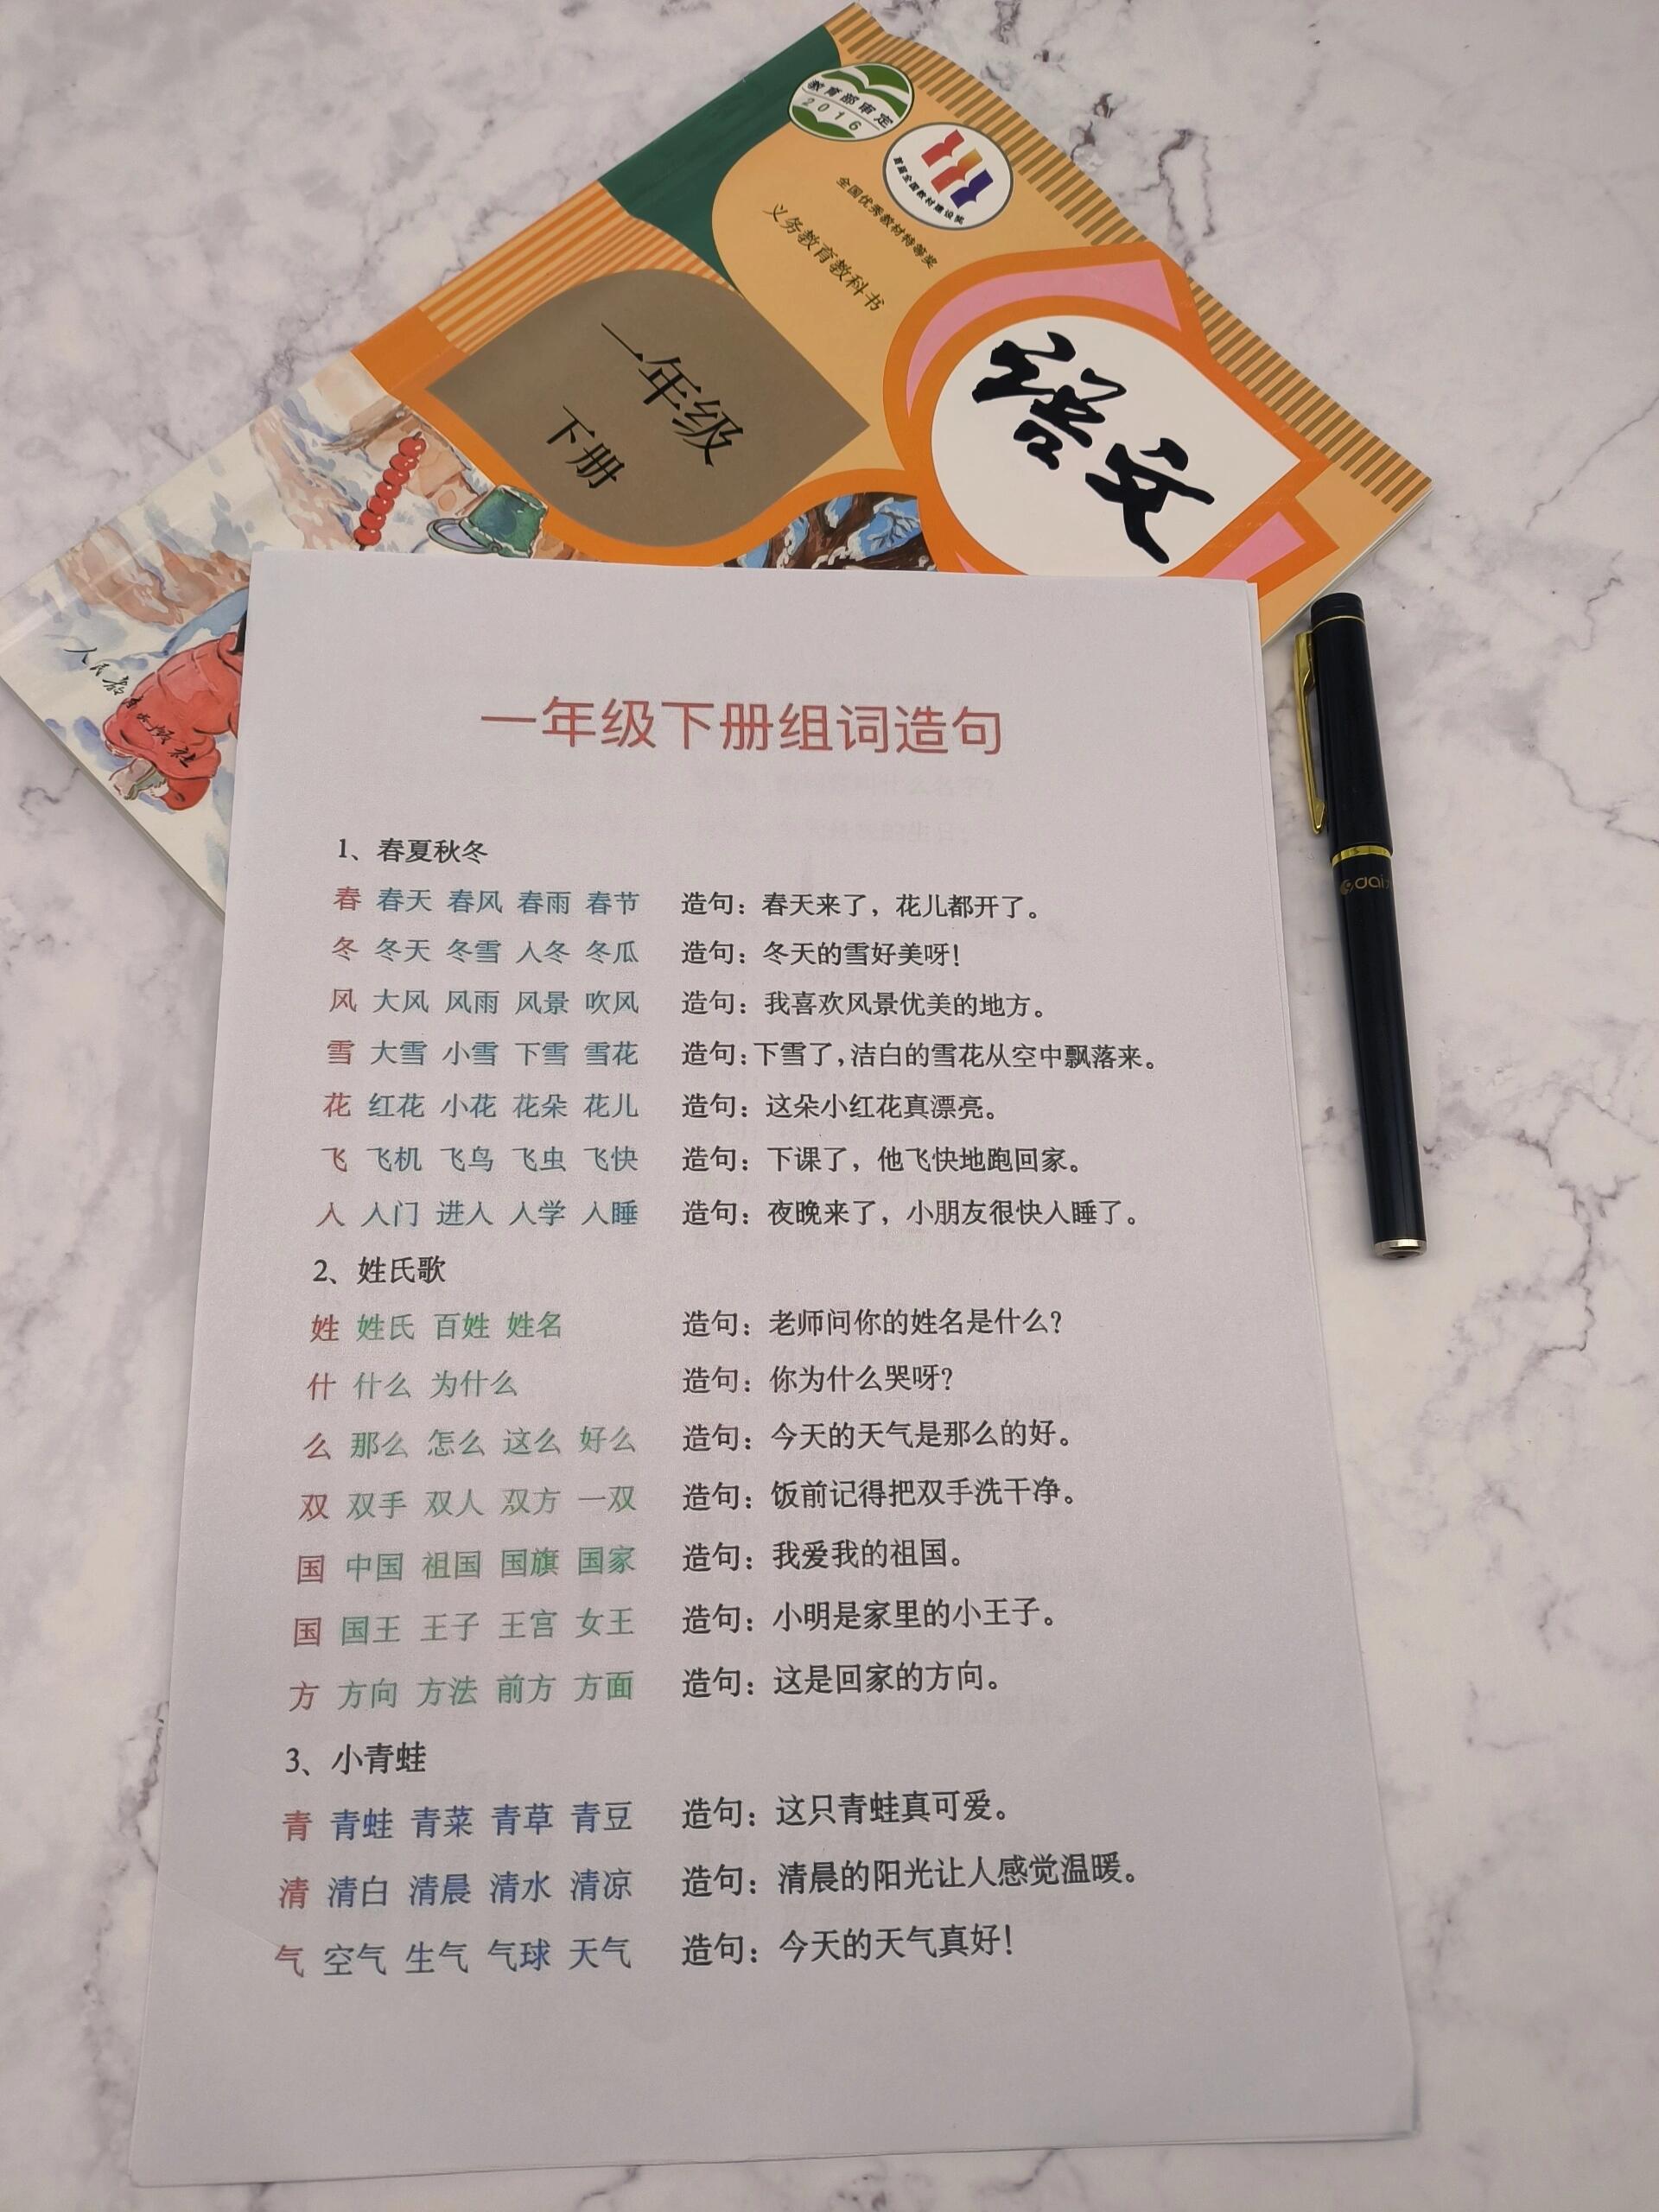 教育部审定
2016
首届全国教材建设奖
全国优秀教材特等奖
义务教育教科书
语文
一年级
下册
人民教育出版社
一年级下册组词造句
1、春夏秋冬
春 春天 春风 春雨 春节 造句：春天来了，花儿都开了。
冬 冬天 冬雪 入冬 冬瓜 造句：冬天的雪好美呀！
风 大风 风雨 风景 吹风 造句：我喜欢风景优美的地方。
雪 大雪 小雪 下雪 雪花 造句：下雪了，洁白的雪花从空中飘落来。
花 红花 小花 花朵 花儿 造句：这朵小红花真漂亮。
飞 飞机 飞鸟 飞虫 飞快 造句：下课了，他飞快地跑回家。
入 入门 进入 入学 入睡 造句：夜晚来了，小朋友很快入睡了。
2、姓氏歌
姓 姓氏 百姓 姓名 造句：老师问你的姓名是什么？
什 什么 为什么 造句：你为什么哭呀？
么 那么 怎么 这么 好么 造句：今天的天气是那么的好。
双 双手 双人 双方 一双 造句：饭前记得把双手洗干净。
国 中国 祖国 国旗 国家 造句：我爱我的祖国。
国 国王 王子 王宫 女王 造句：小明是家里的小王子。
方 方向 方法 前方 方面 造句：这是回家的方向。
3、小青蛙
青 青蛙 青菜 青草 青豆 造句：这只青蛙真可爱。
清 清白 清晨 清水 清凉 造句：清晨的阳光让人感觉温暖。
气 空气 生气 气球 天气 造句：今天的天气真好！